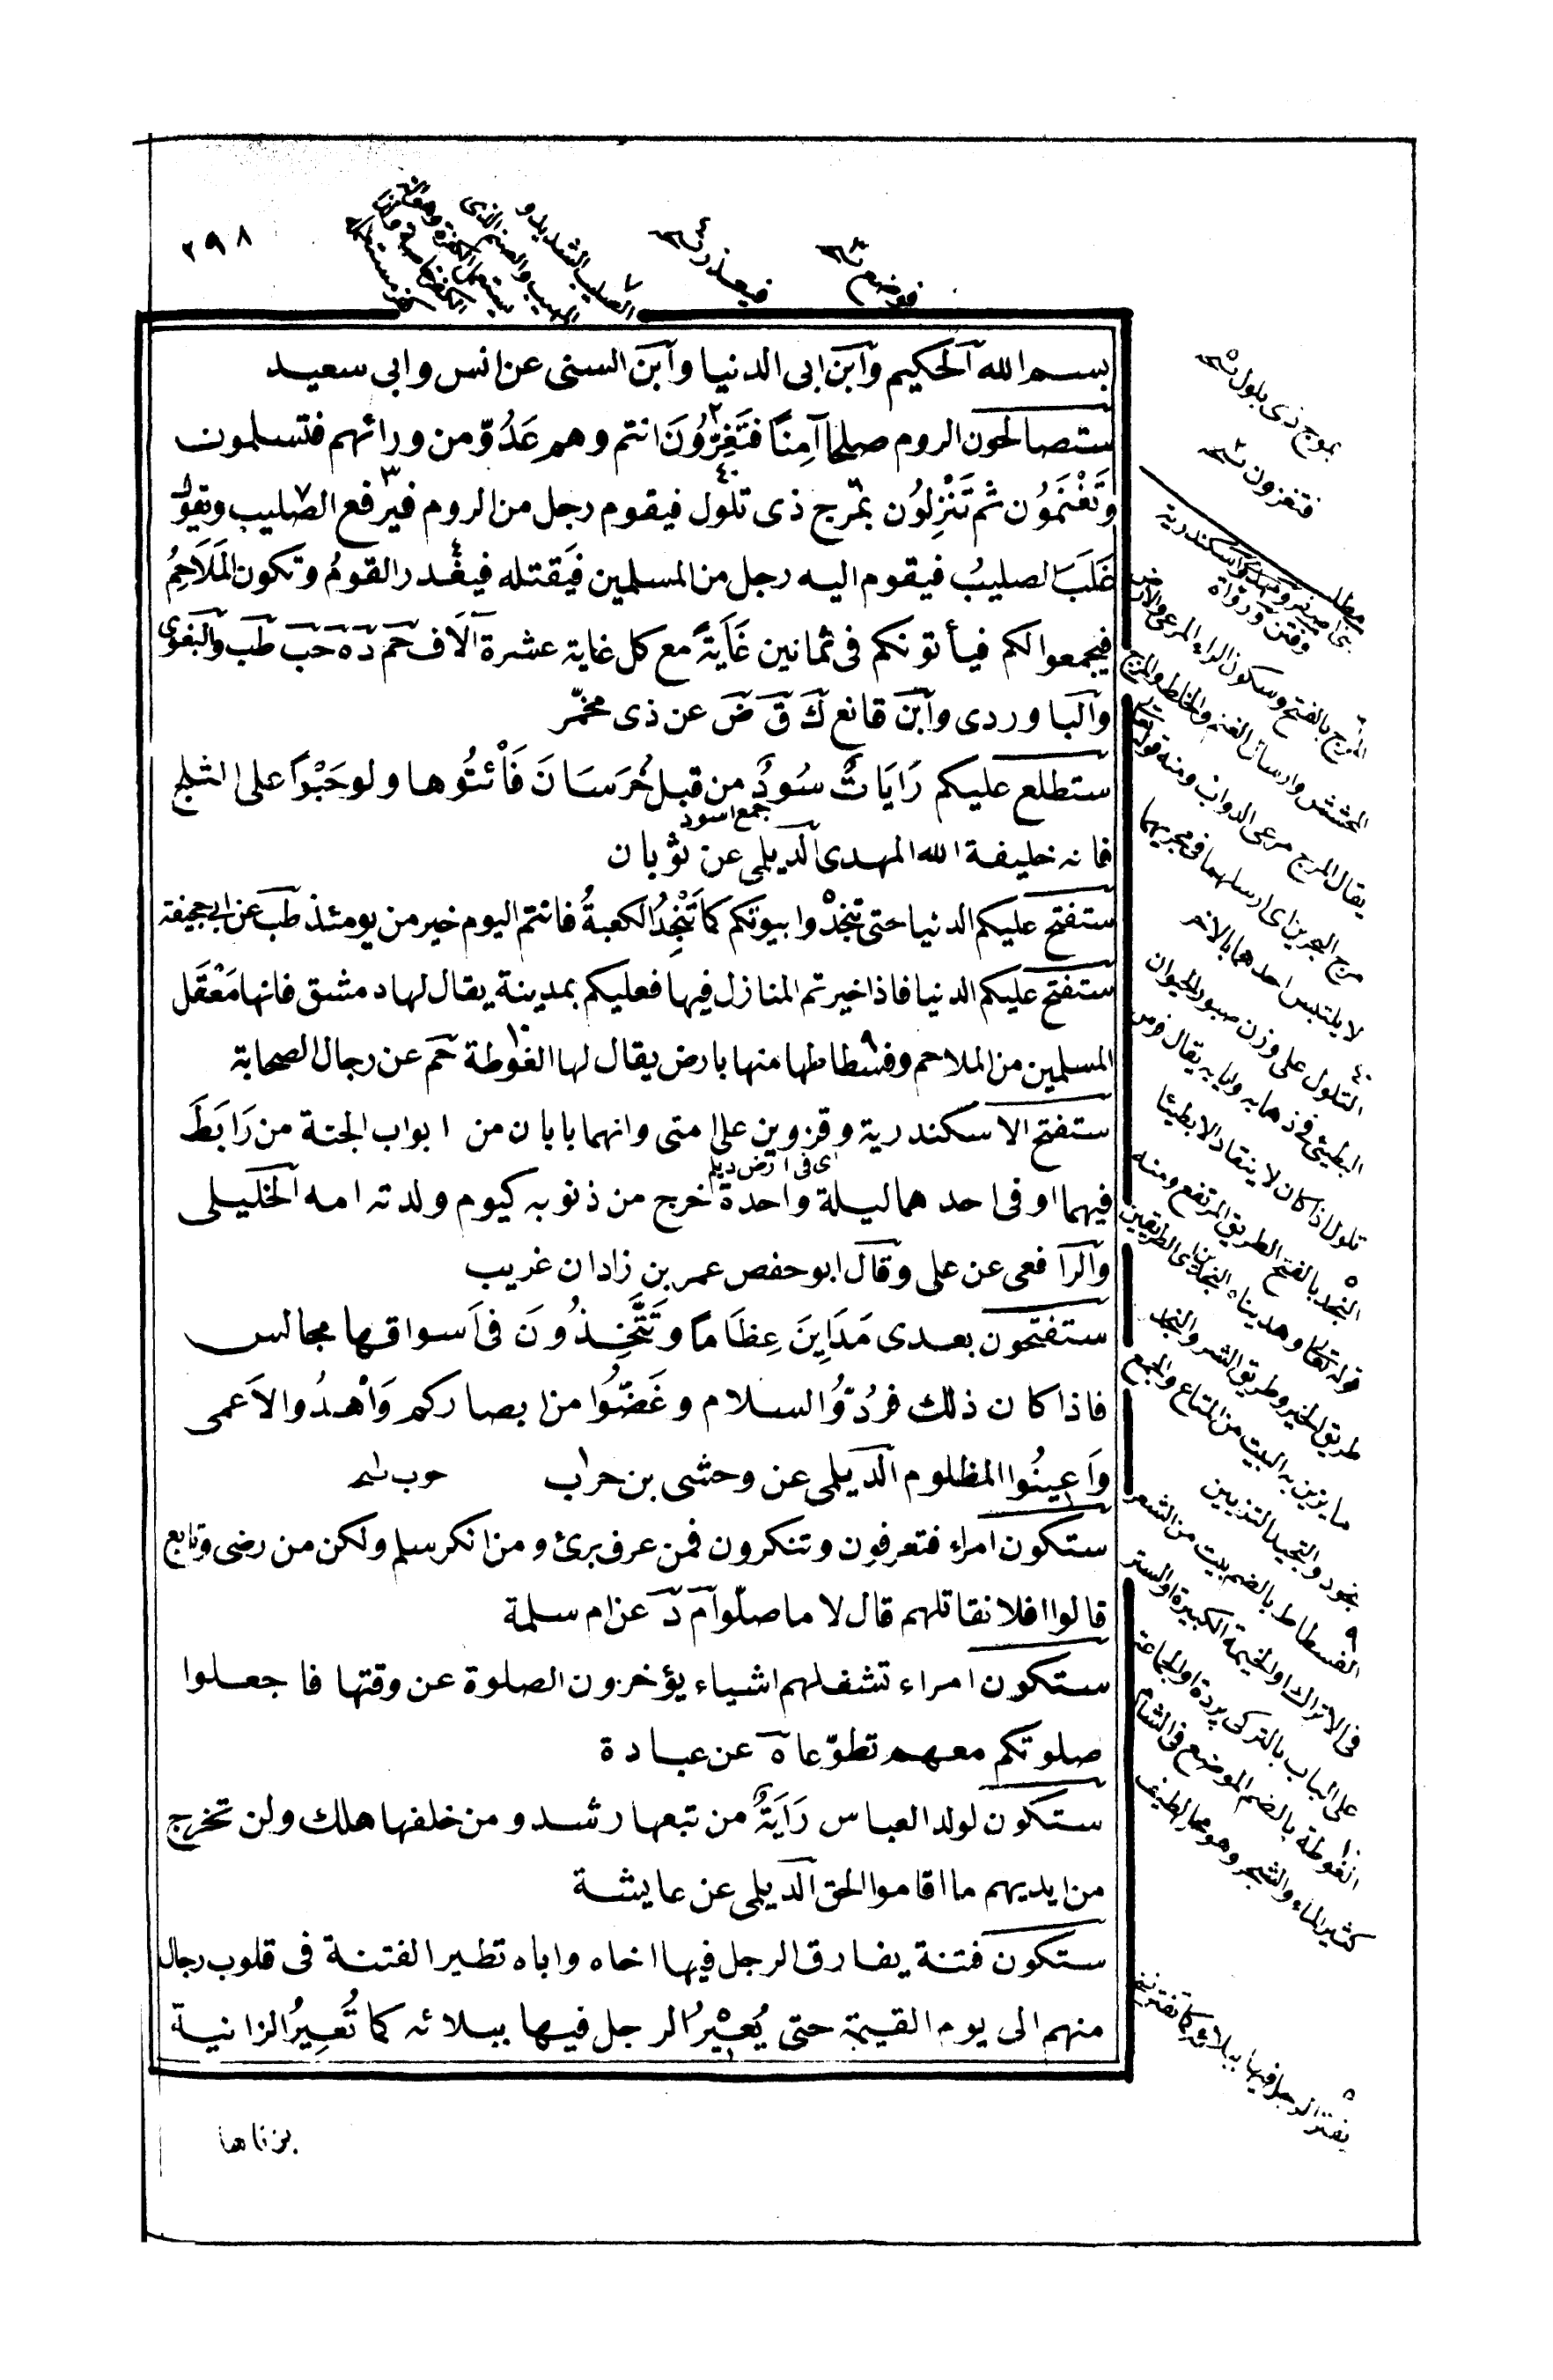 ٢٩٨
بسم الله الحكيم وابن ابى الدنيا وابن السنى عن انس وابى سعيد
ستصالحون الروم صلحا آمِنًا فتَغِزُّوُنَ انتم وهم عَدُوّ من ورائهم فتسلمون
وتَغْنَمَوُن ثم تَنْزِلُون بمَرج ذى تلول فيقوم رجل من الروم فيرفع الصليب ويقول
غَلَبَ الصليبُ فيقوم اليه رجل من المسلمين فيَقتله فيغدر القومُ وتكون المَلَاحِمُ
فيجمعوا لكم فيأتونكم فى ثمانين غَايَةً مع كل غاية عشرة آلاف حم د ه حب طب والبغوى
والباوردى وابن قانع ك ق ض عن ذى مخمّر
ستطلع عليكم رَايَاتٌ سُودٌ من قبل خُرَسَانَ فَأْئتُوها ولو حَبْوًا على الثلج
جمع اسود
فانه خليفة الله المهدى الديلمى عن ثوبان
ستفتح عليكم الدنيا حتى تنجدوا بيوتكم كما تَنْجِدُ الكعبةُ فانتم اليوم خير من يومئذ طب عن ابى جحيفة
ستفتح عليكم الدنيا فاذا خيرتم المنازل فيها فعليكم بمدينة يقال لها دمشق فانها مَعْقَل
المسلمين من الملاحم وفسطاطها منها بارض يقال لها الغوطة حم عن رجال الصحابة
ستفتح الاسكندرية وقزوين على امتى وانهما بابان من ابواب الجنة من رَابَطَ
اى فى ارض ديلم
فيهما او فى احدهما ليلة واحدة خرج من ذنوبه كيوم ولدته امه الخليلى
والرافعى عن على وقال ابو حفص عمر بن زادان غريب
ستفتحون بعدى مَدَايِنَ عِظَامًا وتَتَّخِذُونَ فى اَسواقها مجالس
فاذا كان ذلك فرُدّوُ السلام وغَضّوُا من ابصاركم وَاْهدُوا الاَعمى
وَاَعِينُوا المظلوم الديلمى عن وحشى بن حراب
ستكون امراء فتعرفون وتنكرون فمن عرف برئ ومن انكر سلم ولكن من رضى وتابع
قالوا افلا نقاتلهم قال لا ما صلّوا م د عن ام سلمة
ستكون امراء تشغلهم اشياء يؤخرون الصلوة عن وقتها فاجعلوا
صلوتكم معهم تطوّعا ه عن عبادة
ستكون لولد العباس رَايَةٌ من تبعها رشد ومن خلفها هلك ولن تخرج
من ايديهم ما اقاموا الحق الديلمى عن عايشة
ستكون فتنة يفارق الرجل فيها اخاه واباه تطير الفتنة فى قلوب رجال
منهم الى يوم القيمة حتى يُعَيَّرُ الرجل فيها ببلائه كما تُعَيرُ الزانية
بزناها
المرج بالفتح وسكون الراء المرعى والارض
يقال المرج مرعى الدواب ومنه قوله تعالى
مرج البحرين اى ارسلهما فى مجريهما
لا يلتبس احدهما بالاخر
البطيئ فى ذهابه وايابه يقال فرس
تلول اذا كان لا ينقاد الا بطيئا
النجد بالفتح الطريق المرتفع ومنه
قوله تعالى وهديناه النجدين اى الطريقين
طريق الخير وطريق الشر والنجد
ما يزين به البيت من المتاع والجمع
نجود والتنجيد التزيين
٩ الفسطاط بالضم بيت من الشعر
الغوطة بالضم الموضع فى الشام
كثير الماء والشجر وهو محل لطيف